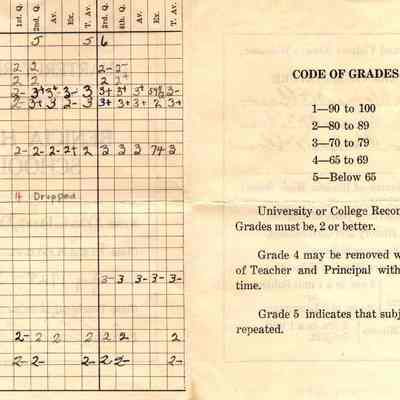 1st. Q. 2nd. Q. Av. Ex. T. Av. 3rd. Q. 4th. Q. Av. Ex. T. Av.
5 5 6
2 2 2- 2-
2 2 2 2+
2- 3+ 3+ 3- 3 3+ 3+ 3+ 3-
2- 3+ 3 2- 3 3+ 3+ 3+ 2 3+
2- 2- 2- 2+ 2 3 3 3 74 3
4 Dropped
3- 3 3- 3- 3-
2- 2- 2 2 2 2 2 2
2- 2- 2- 2- 2- 2-
CODE OF GRADES
1—90 to 100
2—80 to 89
3—70 to 79
4—65 to 69
5—Below 65
University or College Recon
Grades must be, 2 or better.
Grade 4 may be removed w
of Teacher and Principal with
time.
Grade 5 indicates that subj
repeated.